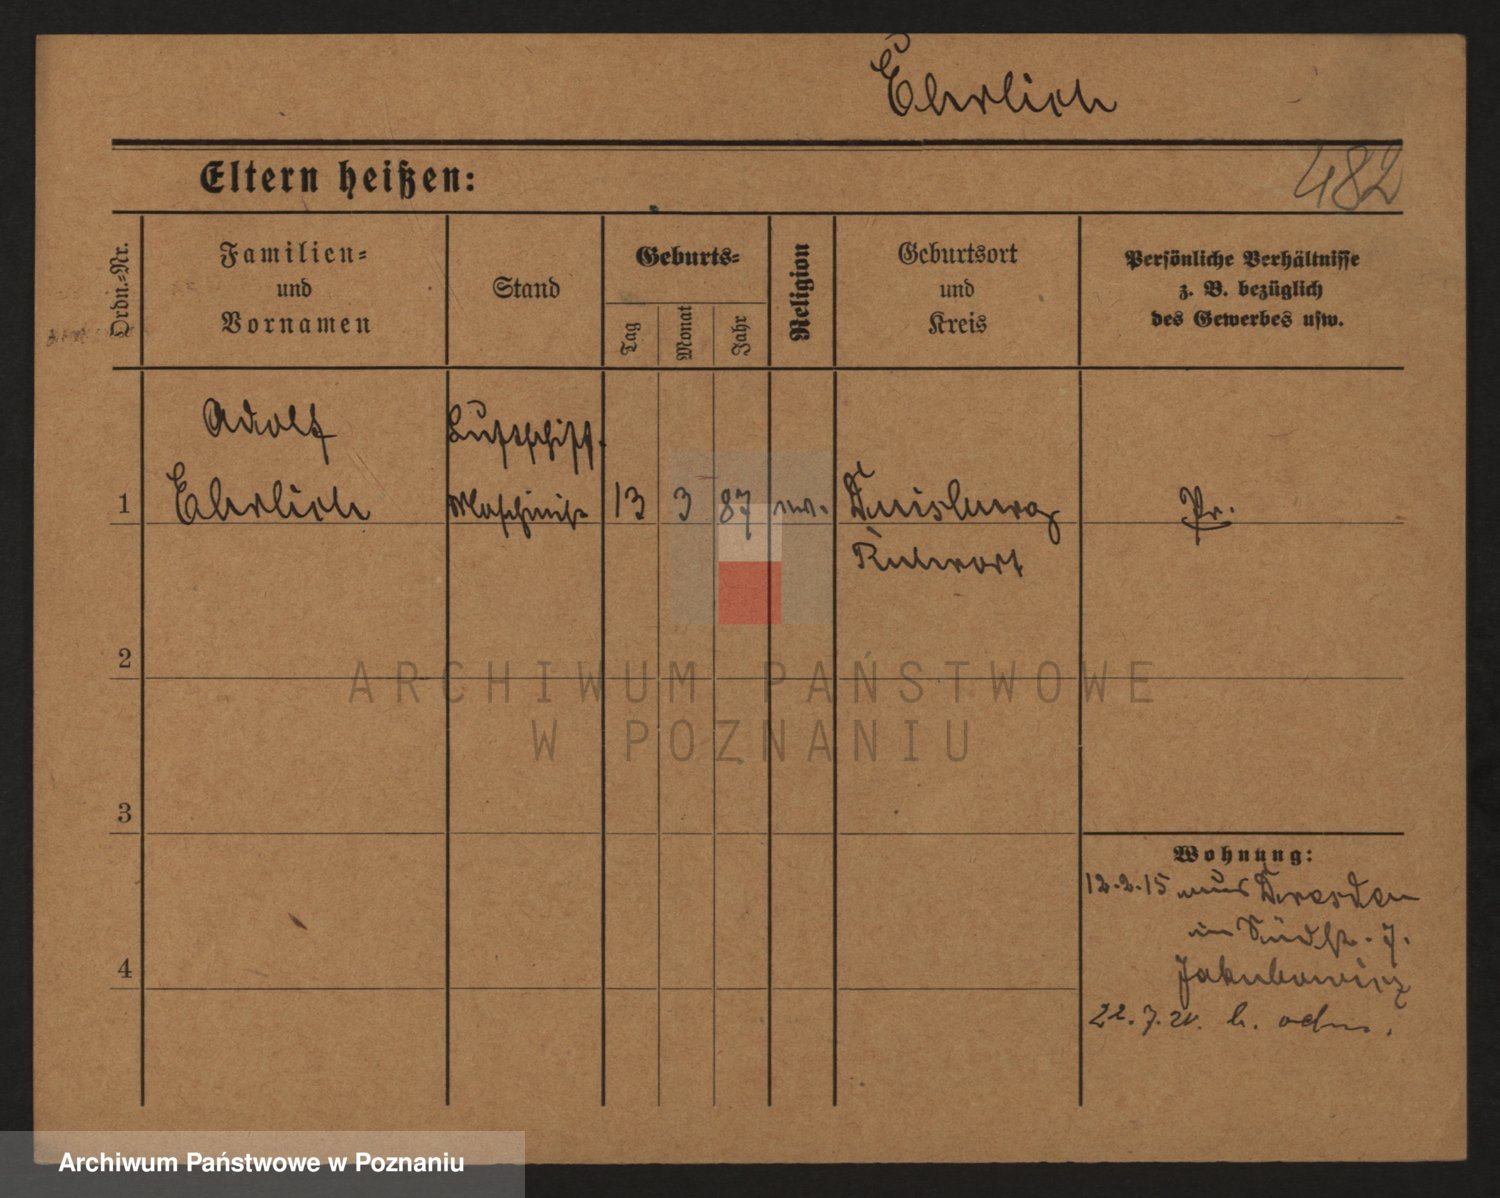 Ehrlich
Eltern heißen:
482
Ordn.-Nr.
Familien-
und
Vornamen
Stand
Geburts-
Tag
Monat
Jahr
Religion
Geburtsort
und
Kreis
Persönliche Verhältnisse
z. B. bezüglich
des Gewerbes usw.
Adolf
Luftschiff.
1 Ehrlich Maschinist 13 3 87 ev. Duisburg Pr.
Ruhrort
2
ARCHIWUM PAŃSTWOWE
W POZNANIU
3
Wohnung:
12.2.15 aus Dresden
in Südstr. 7.
4 Jakubowicz
22. 7. 20.
Archiwum Państwowe w Poznaniu